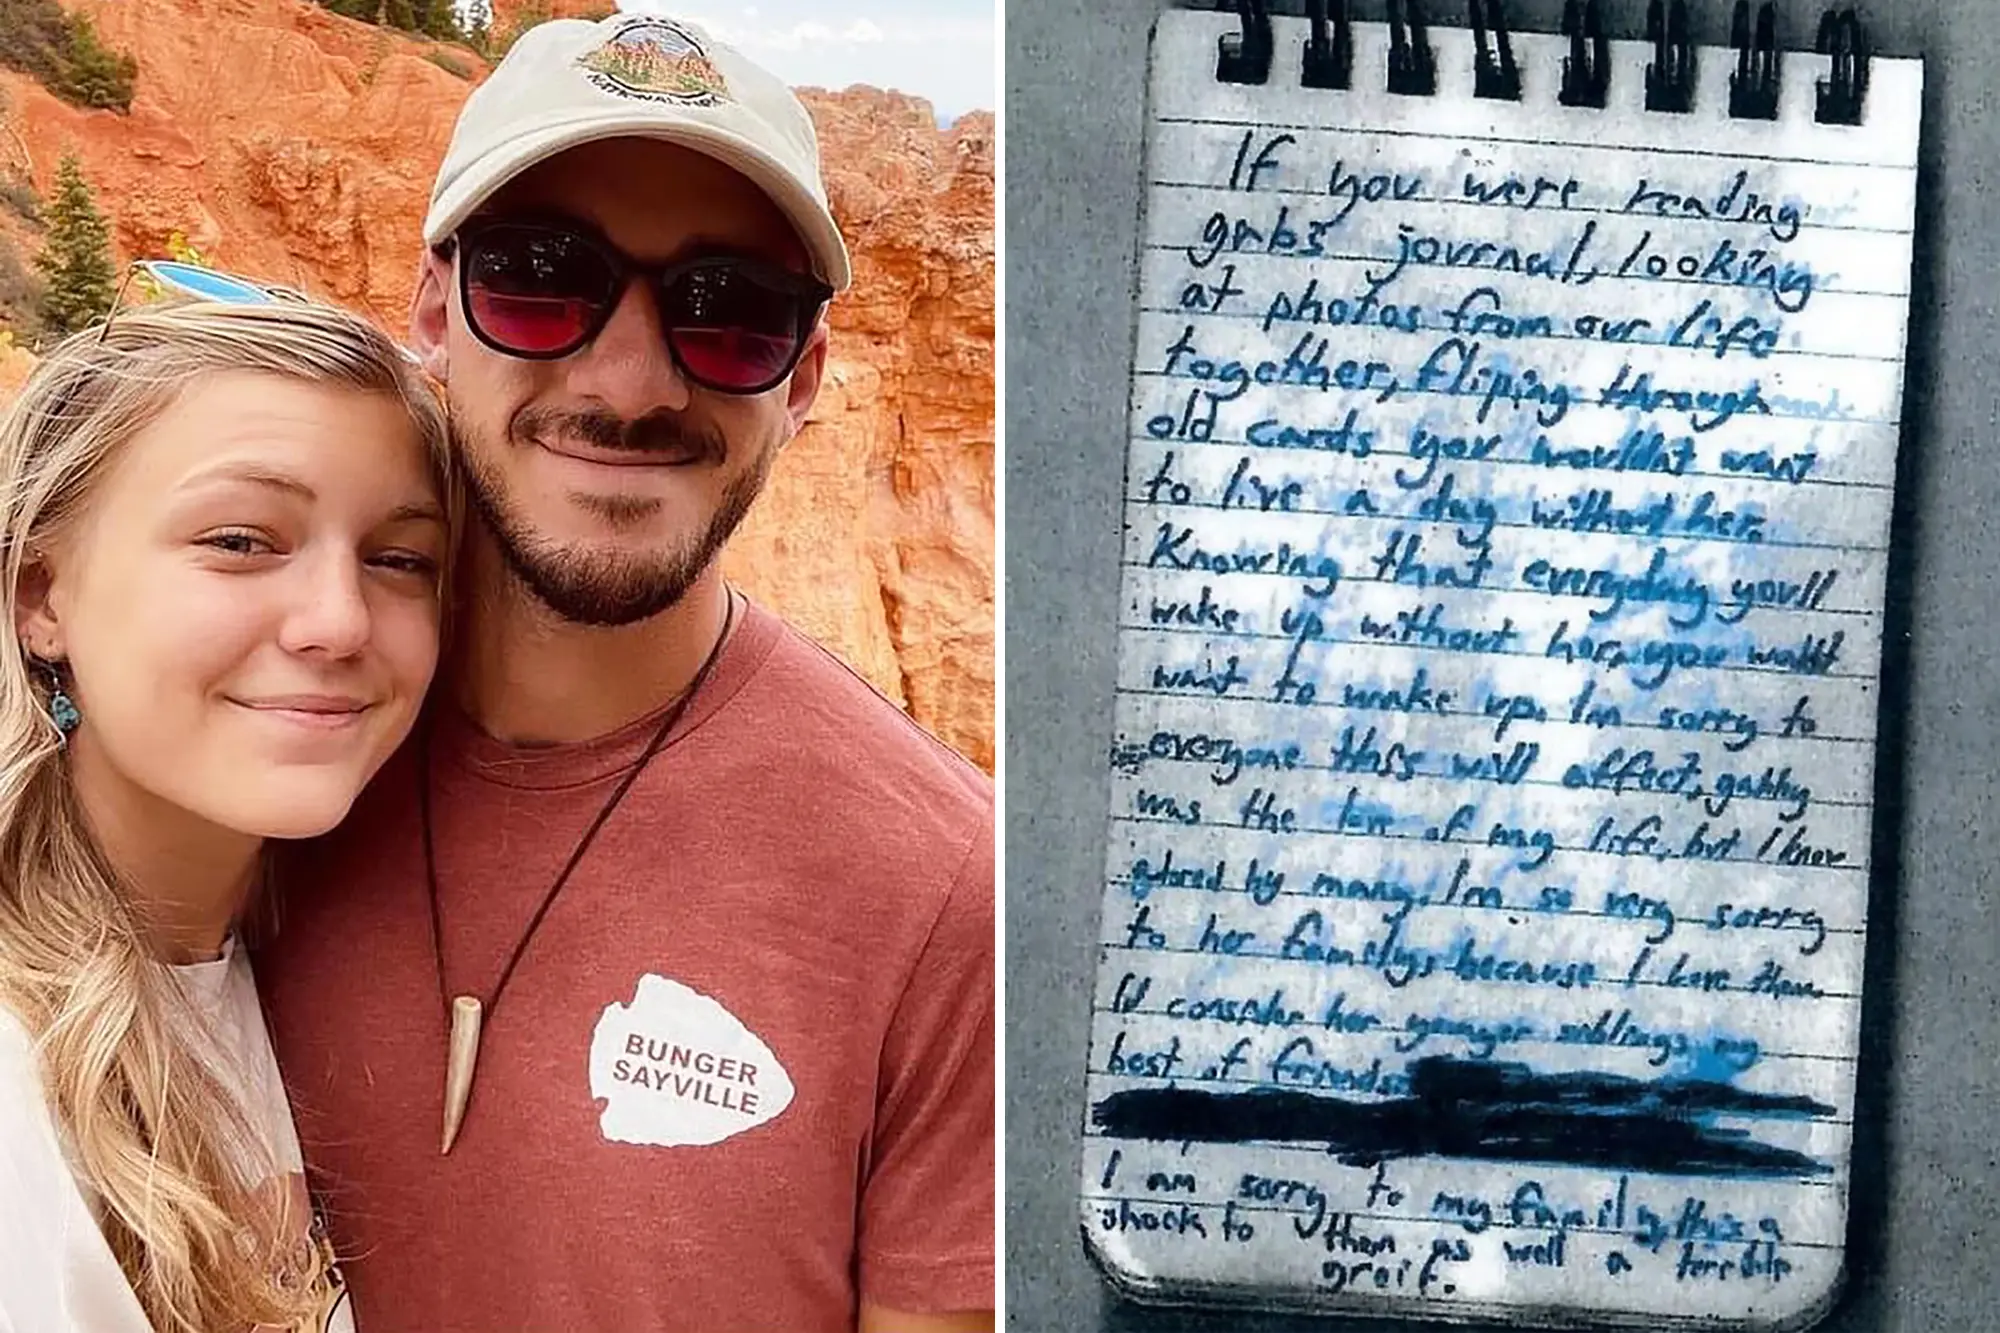 NATIONAL PARK
BUNGER
SAYVILLE
If you were reading
gabs journal, looking
at photos from our life
together, fliping through
old cards you wouldnt want
to live a day without her.
Knowing that everyday you'll
wake up without her, you wont
want to wake up. I'm sorry to
everyone this will affect, gabby
was the love of my life, but I know
adored by many. I'm so very sorry
to her family, because I love them.
I'd consider her younger siblings my
best of friends
I am sorry to my family, this is a
shock to them as well a terrible
greif.